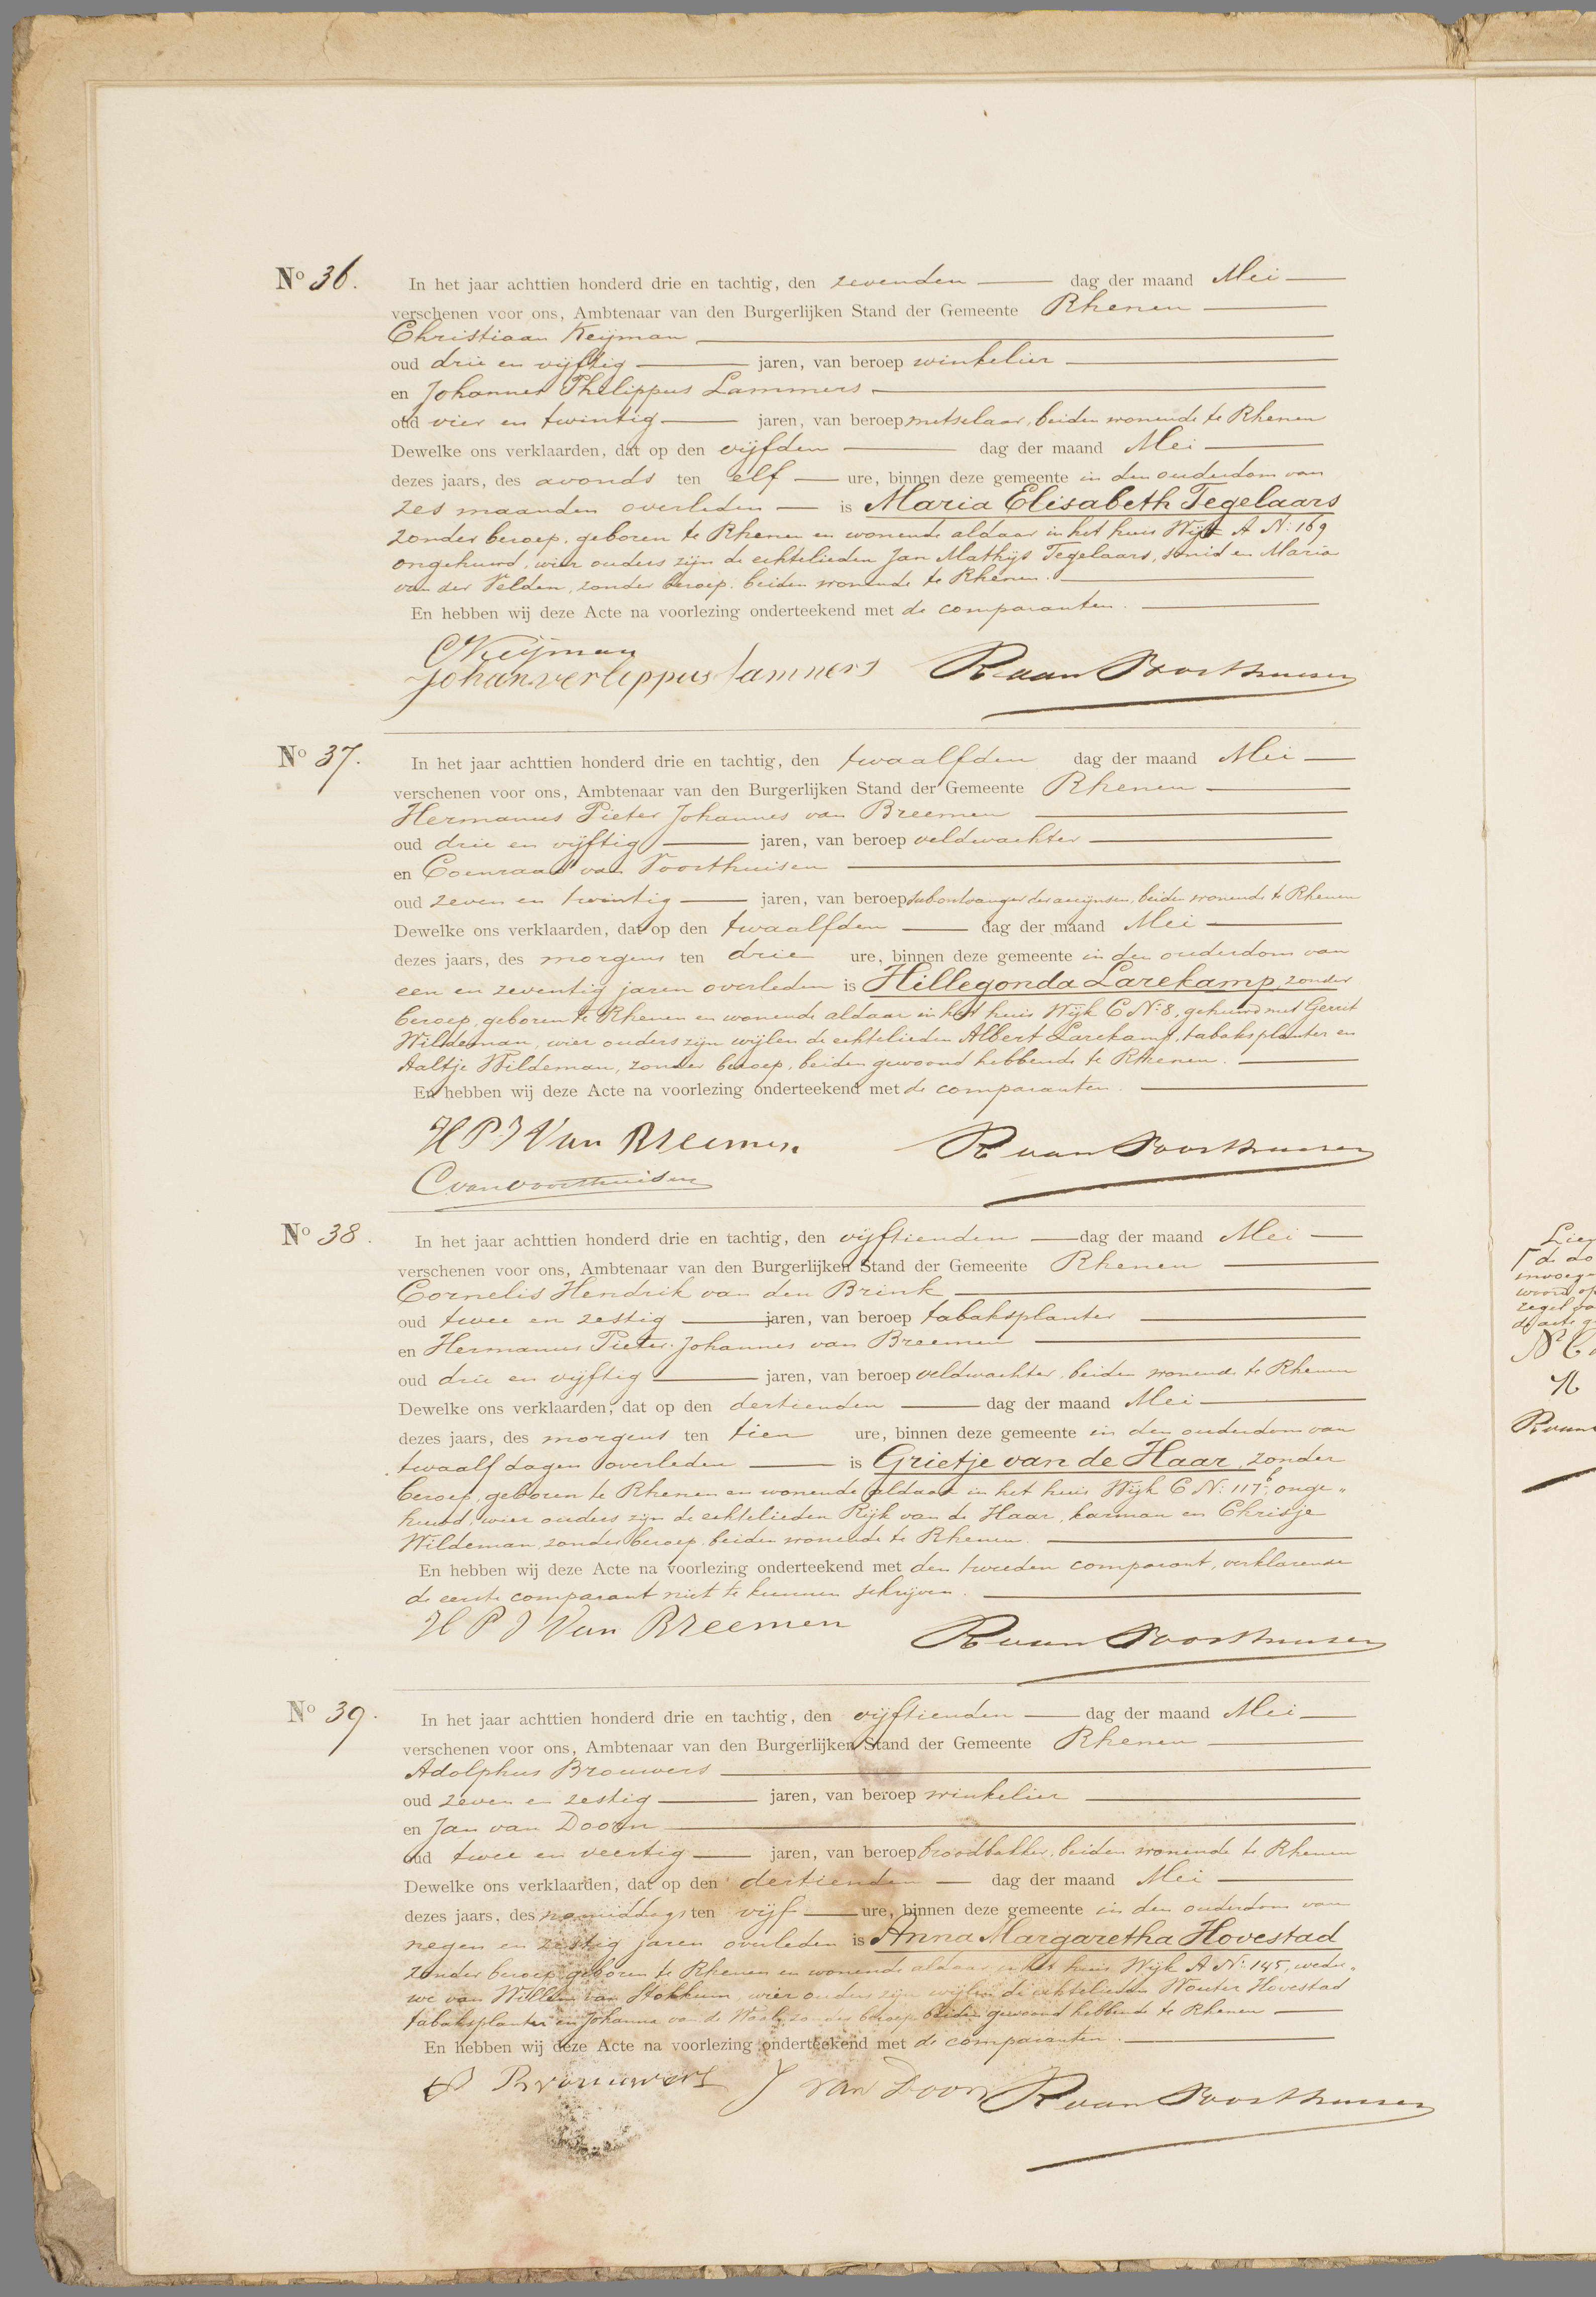 No 36.
In het jaar achttien honderd drie en tachtig, den zevenden dag der maand Mei
verschenen voor ons, Ambtenaar van den Burgerlijken Stand der Gemeente Rhenen
Christiaan Keijman
oud drie en vijftig jaren, van beroep winkelier
en Johannes Philippus Lammers
oud vier en twintig jaren, van beroep metselaar, beiden wonende te Rhenen
Dewelke ons verklaarden, dat op den vijfden dag der maand Mei
dezes jaars, des avonds ten elf ure, binnen deze gemeente in den ouderdom van
zes maanden overleden is Maria Elisabeth Tegelaars
zonder beroep, geboren te Rhenen en wonende aldaar in het huis Wijk A No 169
ongehuwd, wier ouders zijn de echtelieden Jan Mathijs Tegelaars, smid en Maria
van der Velden, zonder beroep, beiden wonende te Rhenen.
En hebben wij deze Acte na voorlezing onderteekend met de comparanten.
C Keijman
Johan verlippus lammers R van Voorthuisen
No 37.
In het jaar achttien honderd drie en tachtig, den twaalfden dag der maand Mei
verschenen voor ons, Ambtenaar van den Burgerlijken Stand der Gemeente Rhenen
Hermanus Pieter Johannes van Breemen
oud drie en vijftig jaren, van beroep veldwachter
en Coenraad van Voorthuisen
oud zeven en twintig jaren, van beroep subontvanger der accijnsen, beiden wonende te Rhenen
Dewelke ons verklaarden, dat op den twaalfden dag der maand Mei
dezes jaars, des morgens ten drie ure, binnen deze gemeente in den ouderdom van
een en zeventig jaren overleden is Hillegonda Larekamp, zonder
beroep, geboren te Rhenen en wonende aldaar in het huis Wijk C No 8, gehuwd met Gerrit
Wildeman, wier ouders zijn wijlen de echtelieden Albert Larekamp, tabaksplanter en
Aaltje Wildeman, zonder beroep, beiden gewoond hebbende te Rhenen.
En hebben wij deze Acte na voorlezing onderteekend met de comparanten.
H P J Van Breemen R van Voorthuisen
C van voorthuisen
No 38.
In het jaar achttien honderd drie en tachtig, den vijftienden dag der maand Mei
verschenen voor ons, Ambtenaar van den Burgerlijken Stand der Gemeente Rhenen
Cornelis Hendrik van den Brink
oud twee en zestig jaren, van beroep tabaksplanter
en Hermanus Pieter Johannes van Breemen
oud drie en vijftig jaren, van beroep veldwachter, beiden wonende te Rhenen
Dewelke ons verklaarden, dat op den dertienden dag der maand Mei
dezes jaars, des morgens ten tien ure, binnen deze gemeente in den ouderdom van
twaalf dagen overleden is Grietje van de Haar, zonder
beroep, geboren te Rhenen en wonende aldaar in het huis Wijk C No 117b, onge„
huwd, wier ouders zijn de echtelieden Rijk van de Haar, karman en Chrisje
Wildeman, zonder beroep, beiden wonende te Rhenen.
En hebben wij deze Acte na voorlezing onderteekend met den tweeden comparant, verklarende
de eerste comparant niet te kunnen schrijven.
H P J Van Breemen R van Voorthuisen
No 39.
In het jaar achttien honderd drie en tachtig, den vijftienden dag der maand Mei
verschenen voor ons, Ambtenaar van den Burgerlijken Stand der Gemeente Rhenen
Adolphus Brouwers
oud zeven en zestig jaren, van beroep winkelier
en Jan van Doorn
oud twee en veertig jaren, van beroep broodbakker, beiden wonende te Rhenen
Dewelke ons verklaarden, dat op den dertienden dag der maand Mei
dezes jaars, des namiddags ten vijf ure, binnen deze gemeente in den ouderdom van
negen en zestig jaren overleden is Anna Margaretha Hovestad
zonder beroep, geboren te Rhenen en wonende aldaar in het huis Wijk A No 145, wedu„
we van Willem van Stokkum, wier ouders zijn wijlen de echtelieden Wouter Hovestad
tabaksplanter en Johanna van de Waal, zonder beroep, beiden gewoond hebbende te Rhenen
En hebben wij deze Acte na voorlezing onderteekend met de comparanten.
A Brouwers J van Doorn R van Voorthuisen